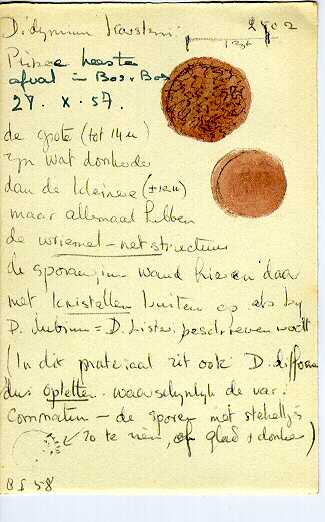 Didymium Karstensii
2502
heester
afval in Bos v Bos
27. X. 57.
de grote (tot 14 u)
zijn wat donkerder
dan de kleinere (±12 u)
maar allemaal hebben
de wriemel-netstructuur
de sporangium wand hier en daar
met kristallen buiten op als bij
D. dubium = D. listeri beschreven wordt
(In dit materiaal zit ook D. difforme
dus opletten. waarschijnlijk de var.
comatum - de sporen met stekeltjes
zo te zien, of glad + donker)
58